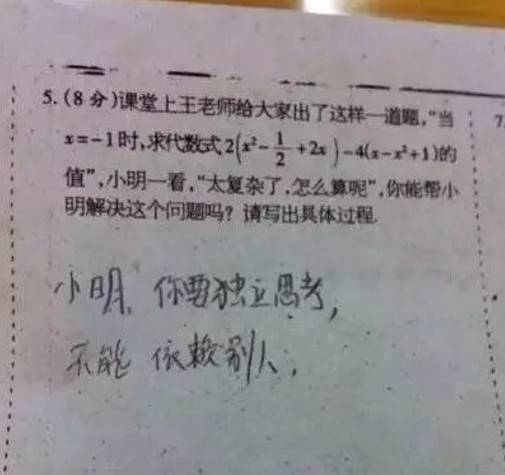 5.(8分)课堂上王老师给大家出了这样一道题,“当
x=-1时,求代数式2(x²-1/2+2x)-4(x-x²+1)的
值”,小明一看,“太复杂了,怎么算呢”,你能帮小
明解决这个问题吗?请写出具体过程.
7.
小明,你要独立思考,
不能依赖别人.